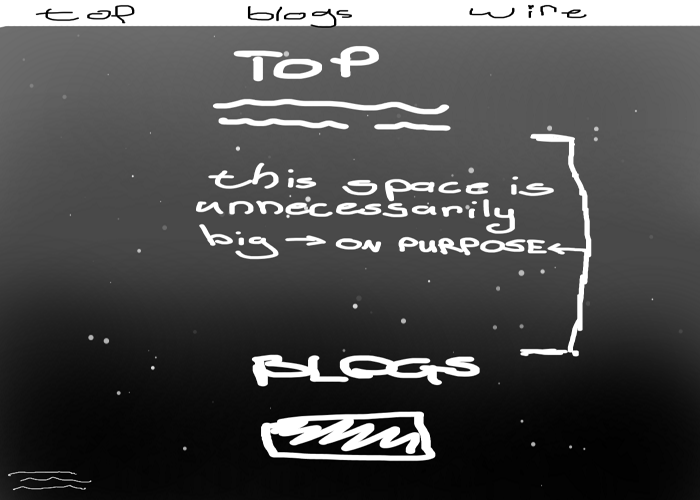 top blogs wire
TOP
this space is
unnecessarily
big → ON PURPOSE ←
BLOGS